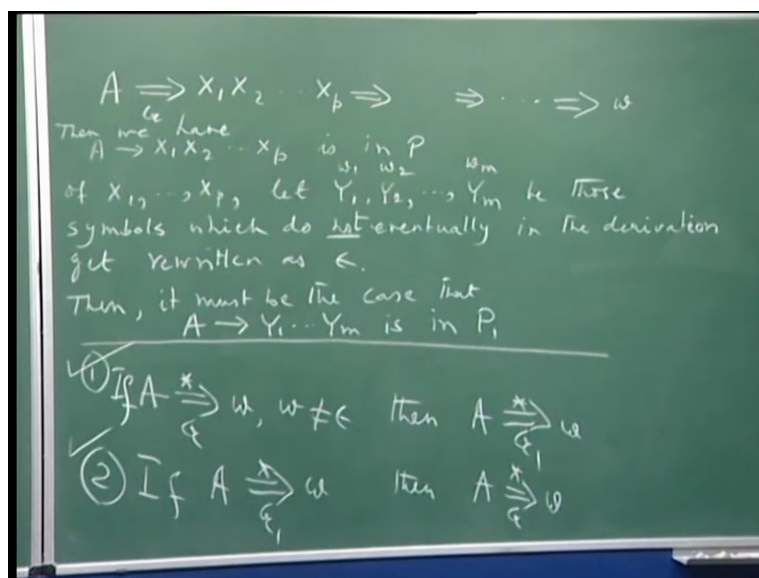 A ⇒ X₁ X₂ ... Xₚ ⇒ ⇒ ... ⇒ w
G
Then we have
A → X₁ X₂ ... Xₚ is in P
w₁ w₂ wₘ
of X₁, ..., Xₚ, let Y₁, Y₂, ..., Yₘ be those
symbols which do not eventually in the derivation
get rewritten as ε.
Then, it must be the case that
A → Y₁ ... Yₘ is in P₁
① If A *⇒ w, w ≠ ε then A *⇒ w
G G₁
② If A *⇒ w then A *⇒ w
G₁ G